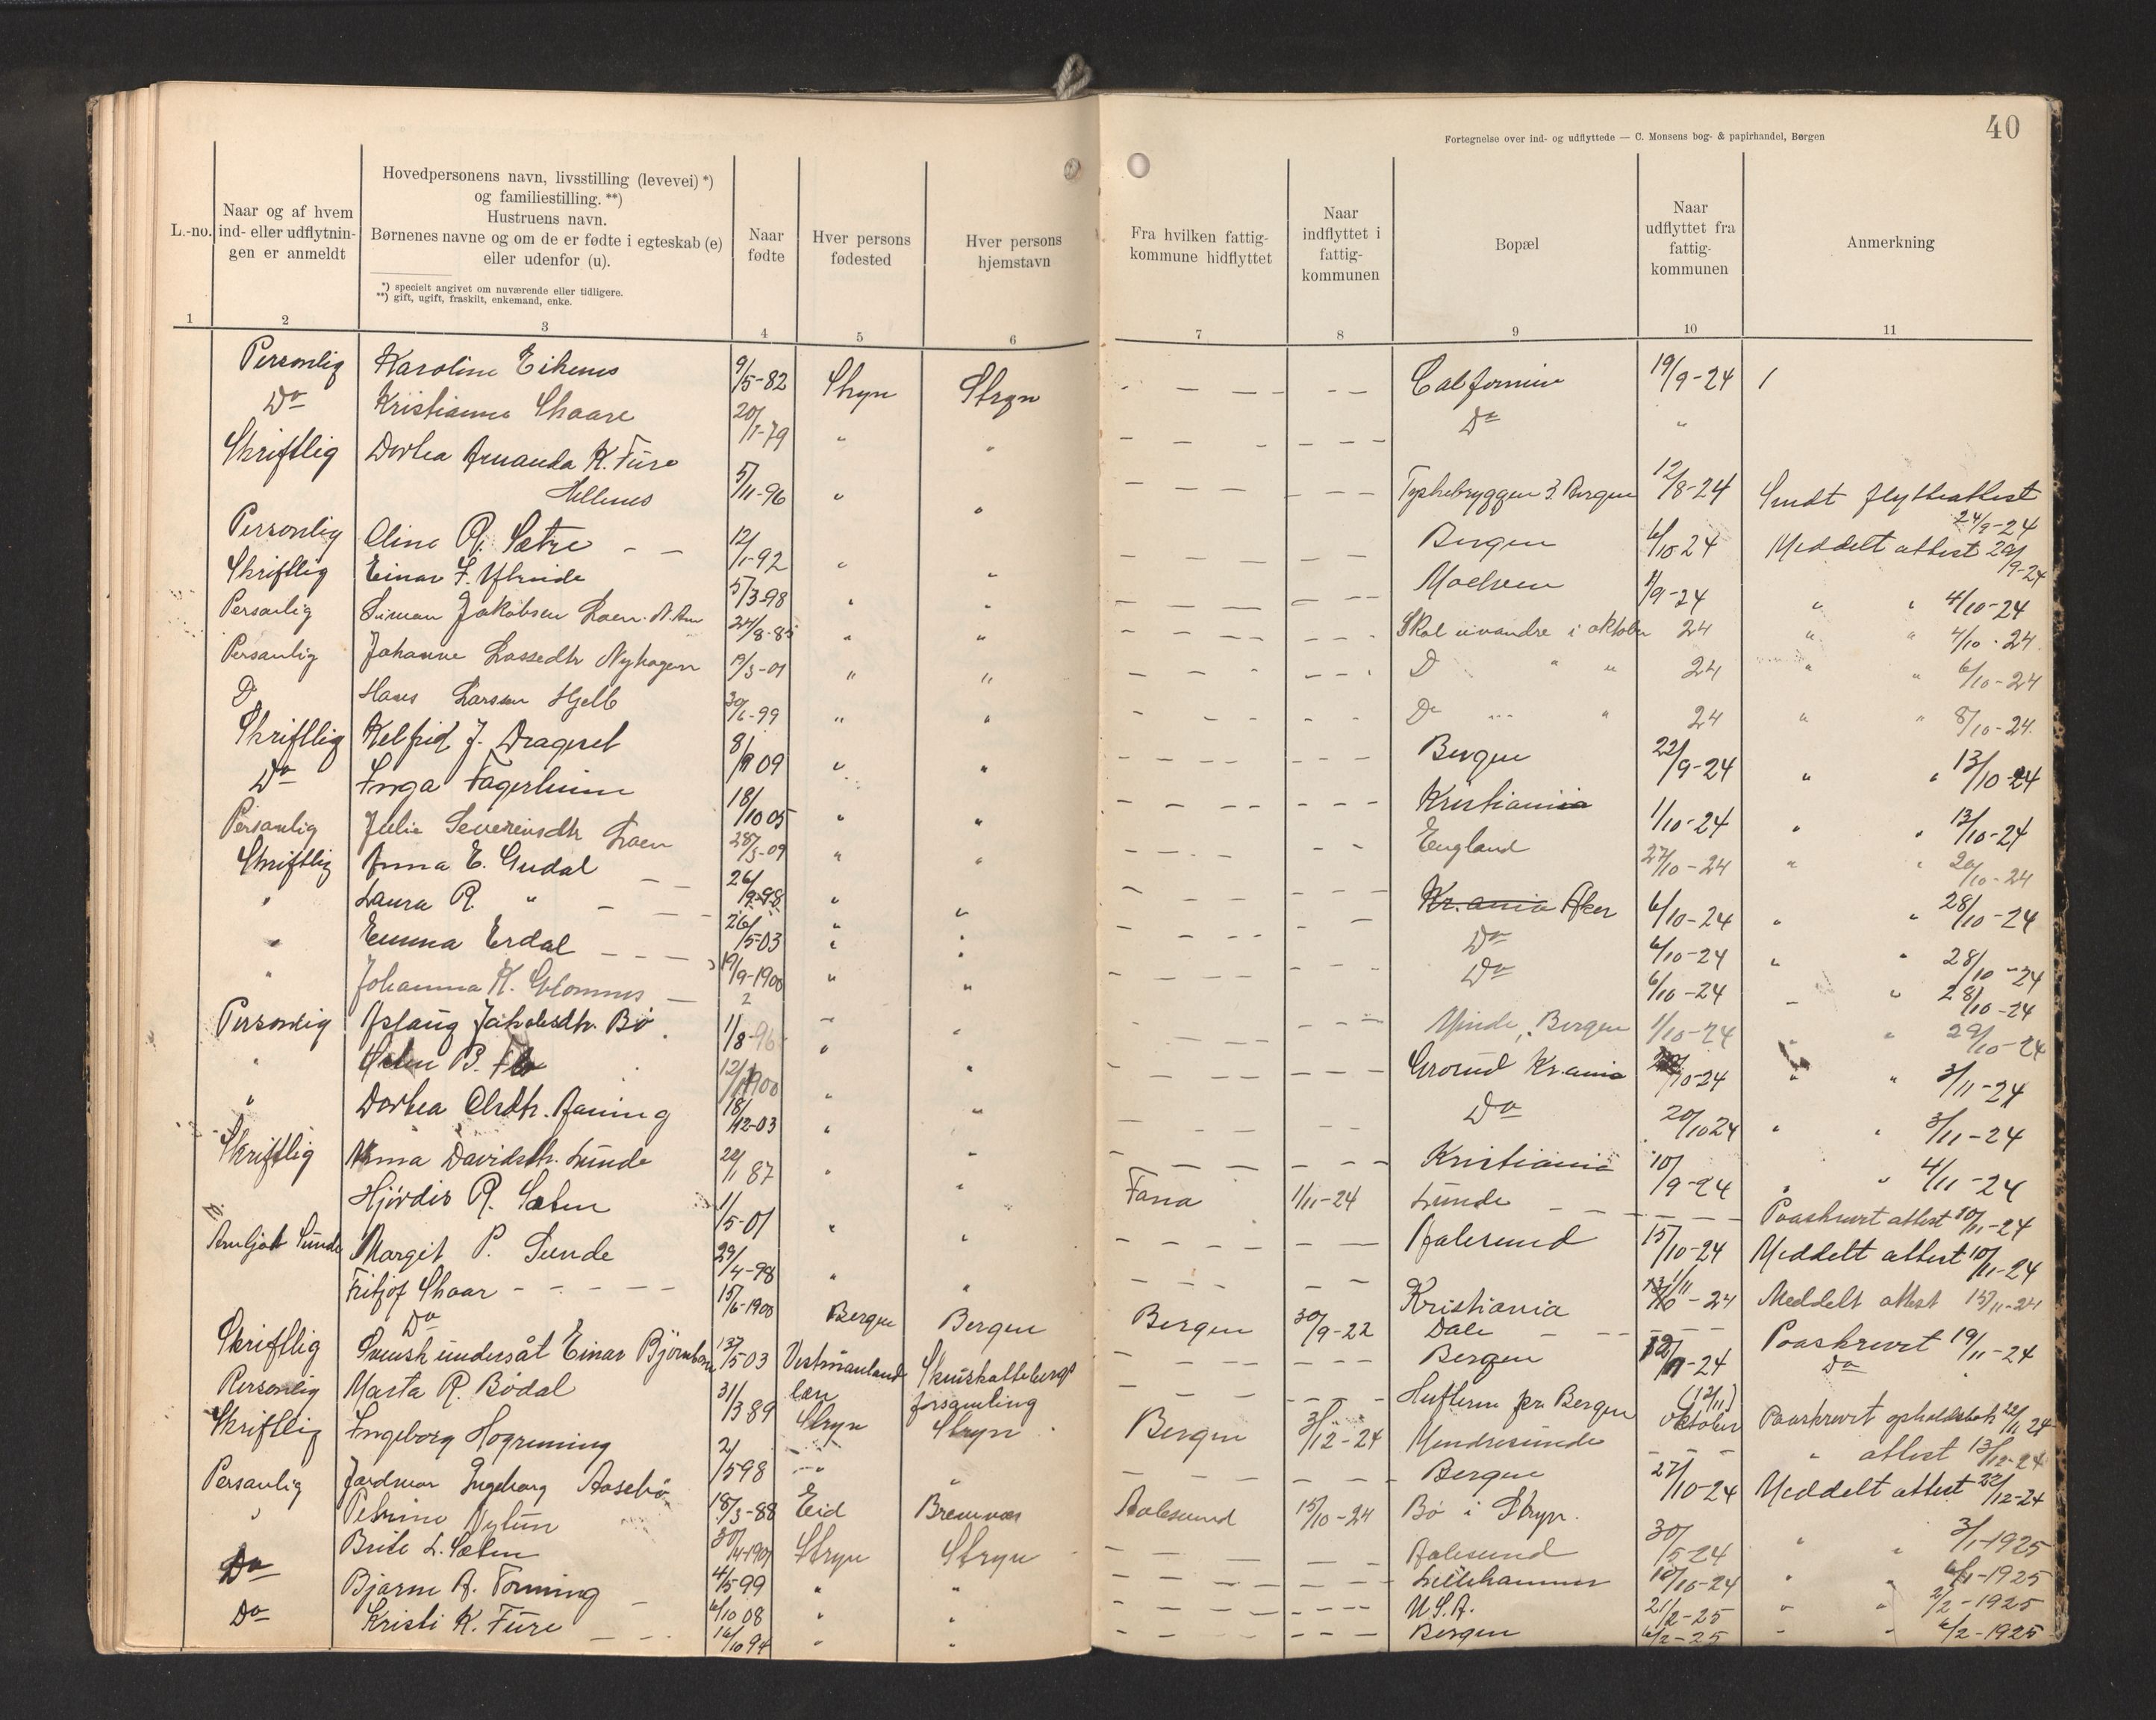 40
Fortegnelse over ind- og udflyttede — C. Monsens bog- & papirhandel, Bergen
L.-no.
Naar og af hvem
ind- eller udflytnin-
gen er anmeldt
Hovedpersonens navn, livsstilling (levevei) *)
og familiestilling. **)
Hustruens navn.
Børnenes navne og om de er fødte i egteskab (e)
eller udenfor (u).
*) specielt angivet om nuværende eller tidligere.
**) gift, ugift, fraskilt, enkemand, enke.
Naar
fødte
Hver persons
fødested
Hver persons
hjemstavn
Fra hvilken fattig-
kommune hidflyttet
Naar
indflyttet i
fattig-
kommunen
Bopæl
Naar
udflyttet fra
fattig-
kommunen
Anmerkning
1 2 3 4 5 6 7 8 9 10 11
Personlig Karoline Eikenes 9/5-82 Stryn Stryn - - - - - California 19/9-24 /
Do Kristianna Skaare 20/1-79 " " - - - - - - Do "
Skriftlig Dorthea Amanda K. Fure
Hellenes 5/11-96 " " - - - - - - Tyskebryggen 3. Bergen 12/8-24 Sendt flytteattest 24/9-24
Personlig Oline R. Sætre - - 12/1-92 " " - - - - - - Bergen 6/10 24 Meddelt attest 29/9-24
Skriftlig Einar F. 5/3-98 " " - - - - - - Moelven 1/9-24 " " 4/10-24
Personlig Simon Jakobsen Loen 24/8-85 " " - - - - - - Skal utvandre i oktober 24 " " 4/10-24
Personlig Johanne Lassedtr Nyhagen 19/3-01 " " - - - - - - D " " 24 " " 6/10-24
D Hans Larssen Hjelle 30/6-99 " " - - - - - - Do " " 24 " " 8/10-24
Skriftlig Kelfrid J. Drageset 8/9 09 " " - - - - - - Bergen 22/9-24 " " 13/10-24
Do Inga Fagerheim 18/10 05 " " - - - - - - Kristiania 1/10-24 " " 13/10-24
Personlig Julie Severinsdtr Loen 28/3-09 " " - - - - - England 27/10-24 " " 20/10-24
Skriftlig Anna E. Gudal - - 26/9-98 " " - - - - - Kr.ania Aker 6/10-24 " " 28/10-24
" Laura R. " - - - 26/5-03 " " - - - - - Do 6/10-24 " " 28/10-24
" Emma Erdal - - - 19/9-1900 " " - - - - - - Do 6/10-24 - " 28/10-24
" Johanna K. Glomnes - " - - - - - - Minde, Bergen 1/10-24 " " 29/10-24
Personlig Aslaug Jakobsdtr. Bø 1/8-96 " " - - - - - - Grorud Kr.ania /10-24 " " 3/11-24
" B. Flo 12/ 1900 " " - - - - - Do 20/10 24 " " 3/11-24
" Dorthea Olsdtr. Aaning 18/12-03 " " - - - - - - Kristiania 10/9-24 " " 4/11-24
Skriftlig Anna Davidsdtr. Sunde 22/1 87 " " Fana 1/11-24 Sunde - - - - - Paaskrevt attest 10/11-24
Hjørdis R. Sæten 1/5-01 " " - - - - - - Aalesund 15/10-24 Meddelt attest 10/11-24
Arnljot Sunde Margit P. Sunde 29/4-98 " " - - - - - Kristiania 1/11-24 Meddelt attest 15/11-24
Fritjof Skaar - - - - - 15/6-1900 Bergen Bergen Bergen 30/9-22 Dale - - - - - Paaskrevt 19/11-24
Do - - - - - - Bergen /11-24 Do
Skriftlig Svensk undersåt Einar 13/5 03 Vestmanland Skinskatteberg - - - - - - Bergen (12/11)
Personlig Marta R. Bødal 31/3 89 læn forsamling Bergen 3/12-24 Mindresunde oktober Paaskrevt opholdsbok 22/11 24
Skriftlig Ingeborg Hogrenning 2/5 98 Stryn Stryn - - - - - - Bergen - - - " attest 13/12-24
Personlig Jardmar Ingeborg Aasebø 18/3-88 " " Aalesund 15/10-24 Bø i Stryn. 27/10-24 Meddelt attest 22/12-24
" Petrine Nytun 30/4-1901 Eid Bremnes - - - - - Aalesund 30/5-24 " " 3/1-1925
Do Brite L. Sæten 4/5 99 Stryn Stryn - - - - - - Lillehammer 10/10-24 " " 6/1-1925
Bjarne A. Tonning - 6/10 08 " " - - - - - - U.S.A. 21/2-25 " " 2/2-1925
Do Kristi K. Fure - - - 16/10 94 " " - - - - - - Bergen 6/2-25 - " 6/2-1925